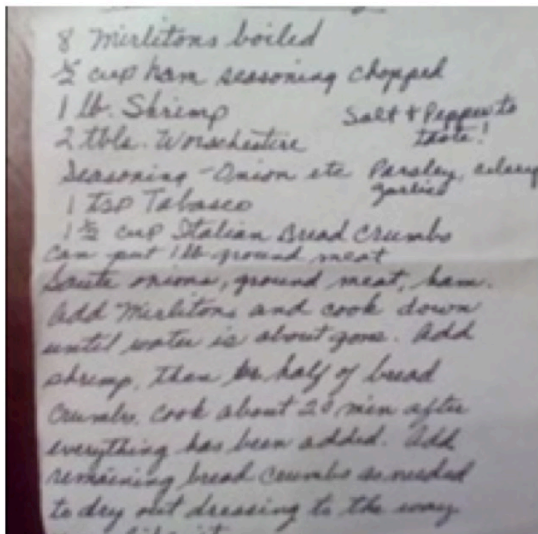 8 Mirlitons boiled
½ cup ham seasoning chopped
1 lb. Shrimp
Salt & Pepper to
taste!
2 tbls. Worschestire
Seasoning - Onion etc Parsley, celery
garlic
1 tsp Tabasco
1 ½ cup Italian Bread Crumbs
can put 1 lb ground meat
Saute onions, ground meat, ham.
Add Mirlitons and cook down
until water is about gone. Add
shrimp, then half of bread
crumbs. Cook about 20 min after
everything has been added. Add
remaining bread crumbs as needed
to dry out dressing to the way